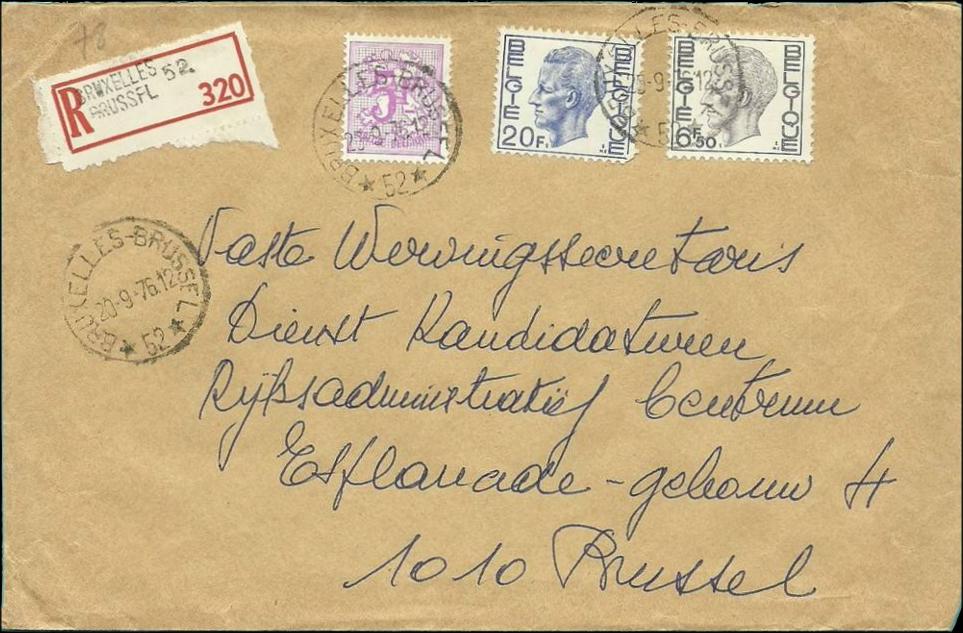 78
R
BRUXELLES 52
BRUSSEL
320
BRUXELLES-BRUSSEL
20-9-76.12
★ 52 ★
BELGIE
BELGIQUE
20F.
BRUXELLES-BRUSSEL
20-9-76.12
52
BELGIE
BELGIQUE
6F50.
BRUXELLES-BRUSSEL
20-9-76.12
★ 52 ★
Vaste Wervingssecretaris
Dienst Kandidaturen
Rijksadministratief Centrum
Esplanade - gebouw 4
1010 Brussel